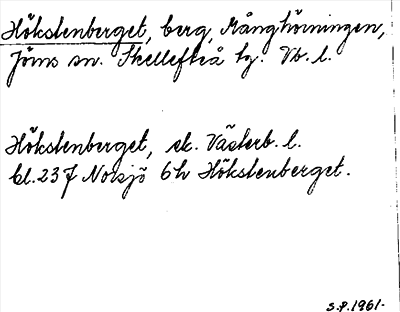 Hökstenberget, berg, Månghörningen,
Jörns sn. Skellefteå tg. Vb. l.
Hökstenberget, ek. Västerb. l.
bl. 23 J Norsjö 6h Hökstenberget.
S.P. 1961.